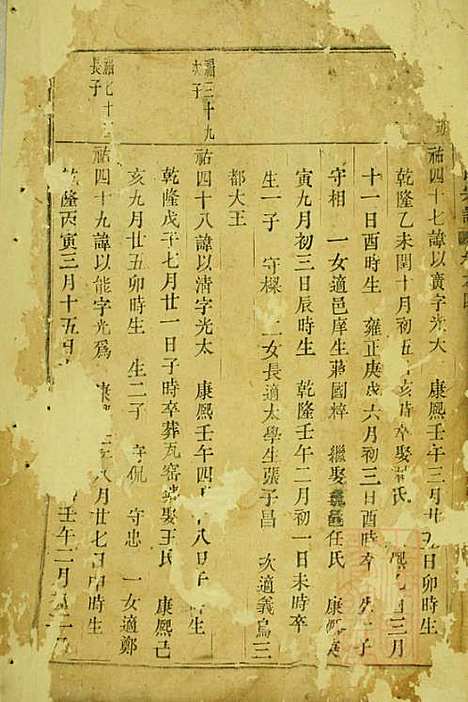 祐四十七諱以賓字光大 康熙壬午三月廿九日卯時生
乾隆乙未閏十月初五 亥時卒娶 氏 熙乙酉三月
十一日酉時生 雍正庚戌六月初三日酉時卒 生一子
守相 一女適邑庠生 國梓 繼娶 任氏 康熙庚
寅九月初三日辰時生 乾隆壬午二月初一日未時卒
生一子 守樑 二女長適太學生張子昌 次適義烏三
都大王
福三十九
子
祐四十八諱以清字光太 康熙壬午四月 八日子時生
乾隆戊子七月廿一日子時卒葬瓦窑 娶王氏 康熙己
亥九月廿五卯時生 生二子 守侃 守忠 一女適鄭
福七十
長子
祐四十九諱以能字光爲 康 八月廿七日申時生
乾隆丙寅三月十五日 壬午二月